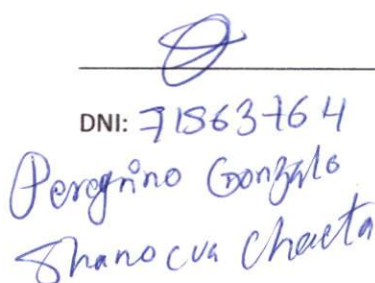 DNI: 71563764
Peregrino Gonzalo
Shanocua Chaeta